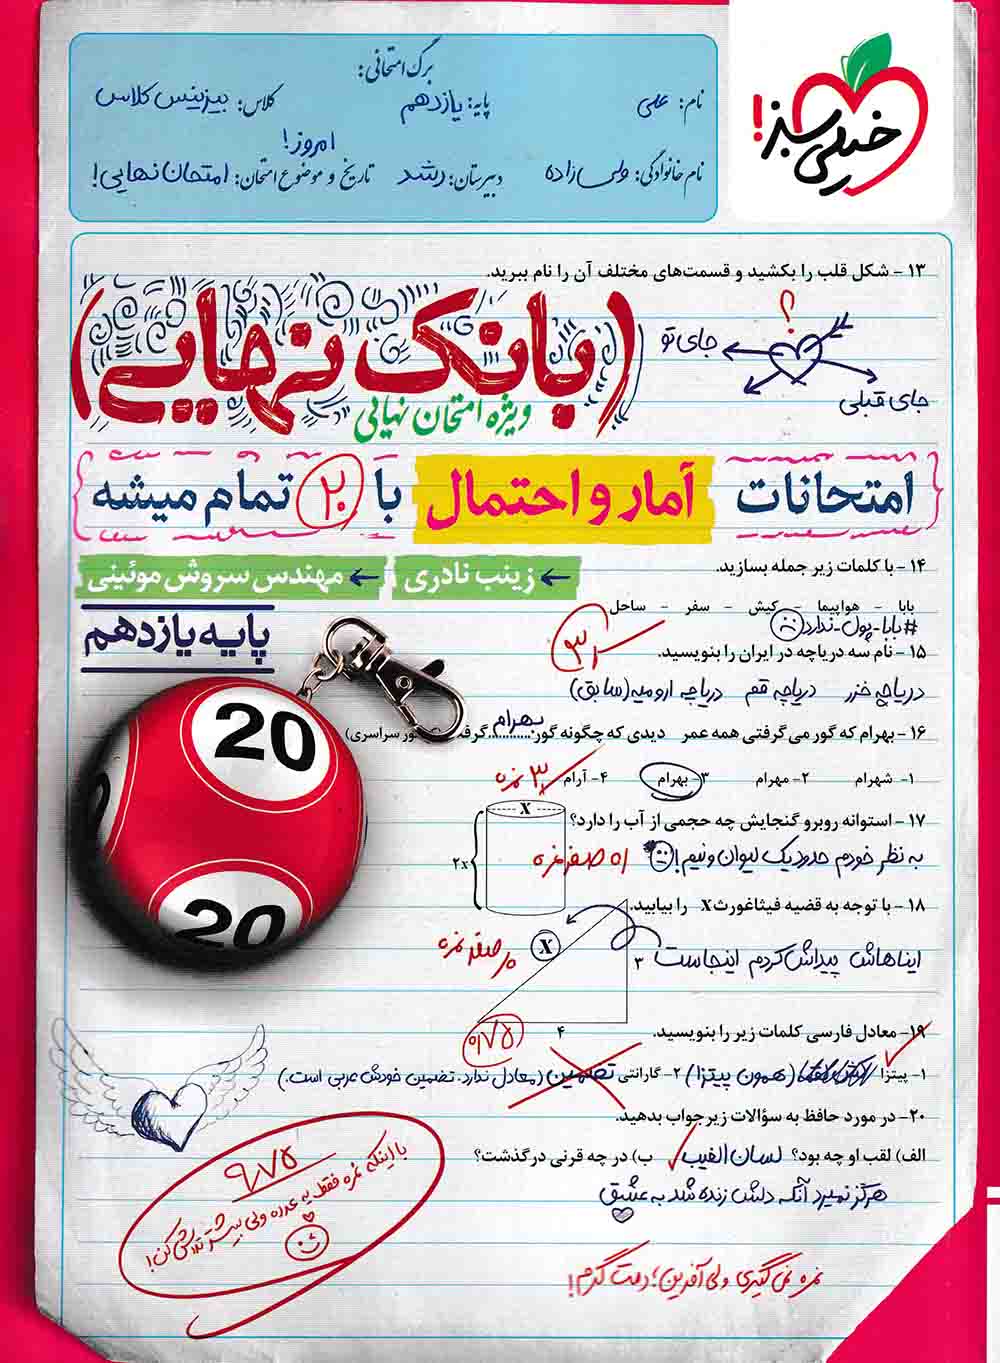 خیلی سبز!
برگ امتحانی:
نام: علی
پایه: یازدهم
کلاس: بیزینس کلاس
نام خانوادگی: ولی زاده
دبیرستان: رشد
تاریخ و موضوع امتحان: امروز! امتحان نهایی!
۱۳ - شکل قلب را بکشید و قسمت‌های مختلف آن را نام ببرید.
؟
جای تو
جای قبلی
(بانک نهایی)
ویژه امتحان نهایی
امتحانات آمار و احتمال با ۲۰ تمام میشه
← زینب نادری ← مهندس سروش موئینی
پایه یازدهم
20
20
۱۴ - با کلمات زیر جمله بسازید.
بابا - هواپیما - کیش - سفر - ساحل
#بابا_پول_ندارد
۱۵ - نام سه دریاچه در ایران را بنویسید.
دریاچه خزر دریاچه قم دریاچه ارومیه (سابق)
۱۶ - بهرام که گور می‌گرفتی همه عمر دیدی که چگونه گور بهرام گرفت
سراسری)
۱- شهرام ۲- مهرام ۳- بهرام ۴- آرام
۳ نمره
۱۷ - استوانه روبرو گنجایش چه حجمی از آب را دارد؟
x
2x
به نظر خودم حدود یک لیوان و نیم!
صفر نمره
۱۸ - با توجه به قضیه فیثاغورث x را بیابید.
ایناهاش پیداش کردم اینجاست
x
۳
۴
صفر نمره
۱۹- معادل فارسی کلمات زیر را بنویسید.
۰/۷۵
۱- پیتزا (همون پیتزا) ۲- گارانتی تضمین (معادل ندارد. تضمین خودش عربی است.)
۲۰- در مورد حافظ به سؤالات زیر جواب بدهید.
الف) لقب او چه بود؟ لسان الغیب ب) در چه قرنی درگذشت؟
هرگز نمیرد آنکه دلش زنده شد به عشق
۹/۷۵
با اینکه نمره فقط یه عدده ولی بیشتر تلاش کن!
نمره نمی‌گیری ولی آفرین؛ دمت گرم!